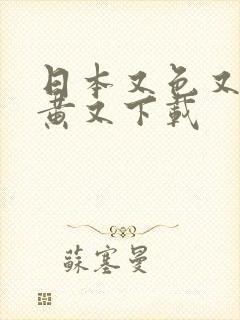 日本又色又
黄又下載
蘇塞曼